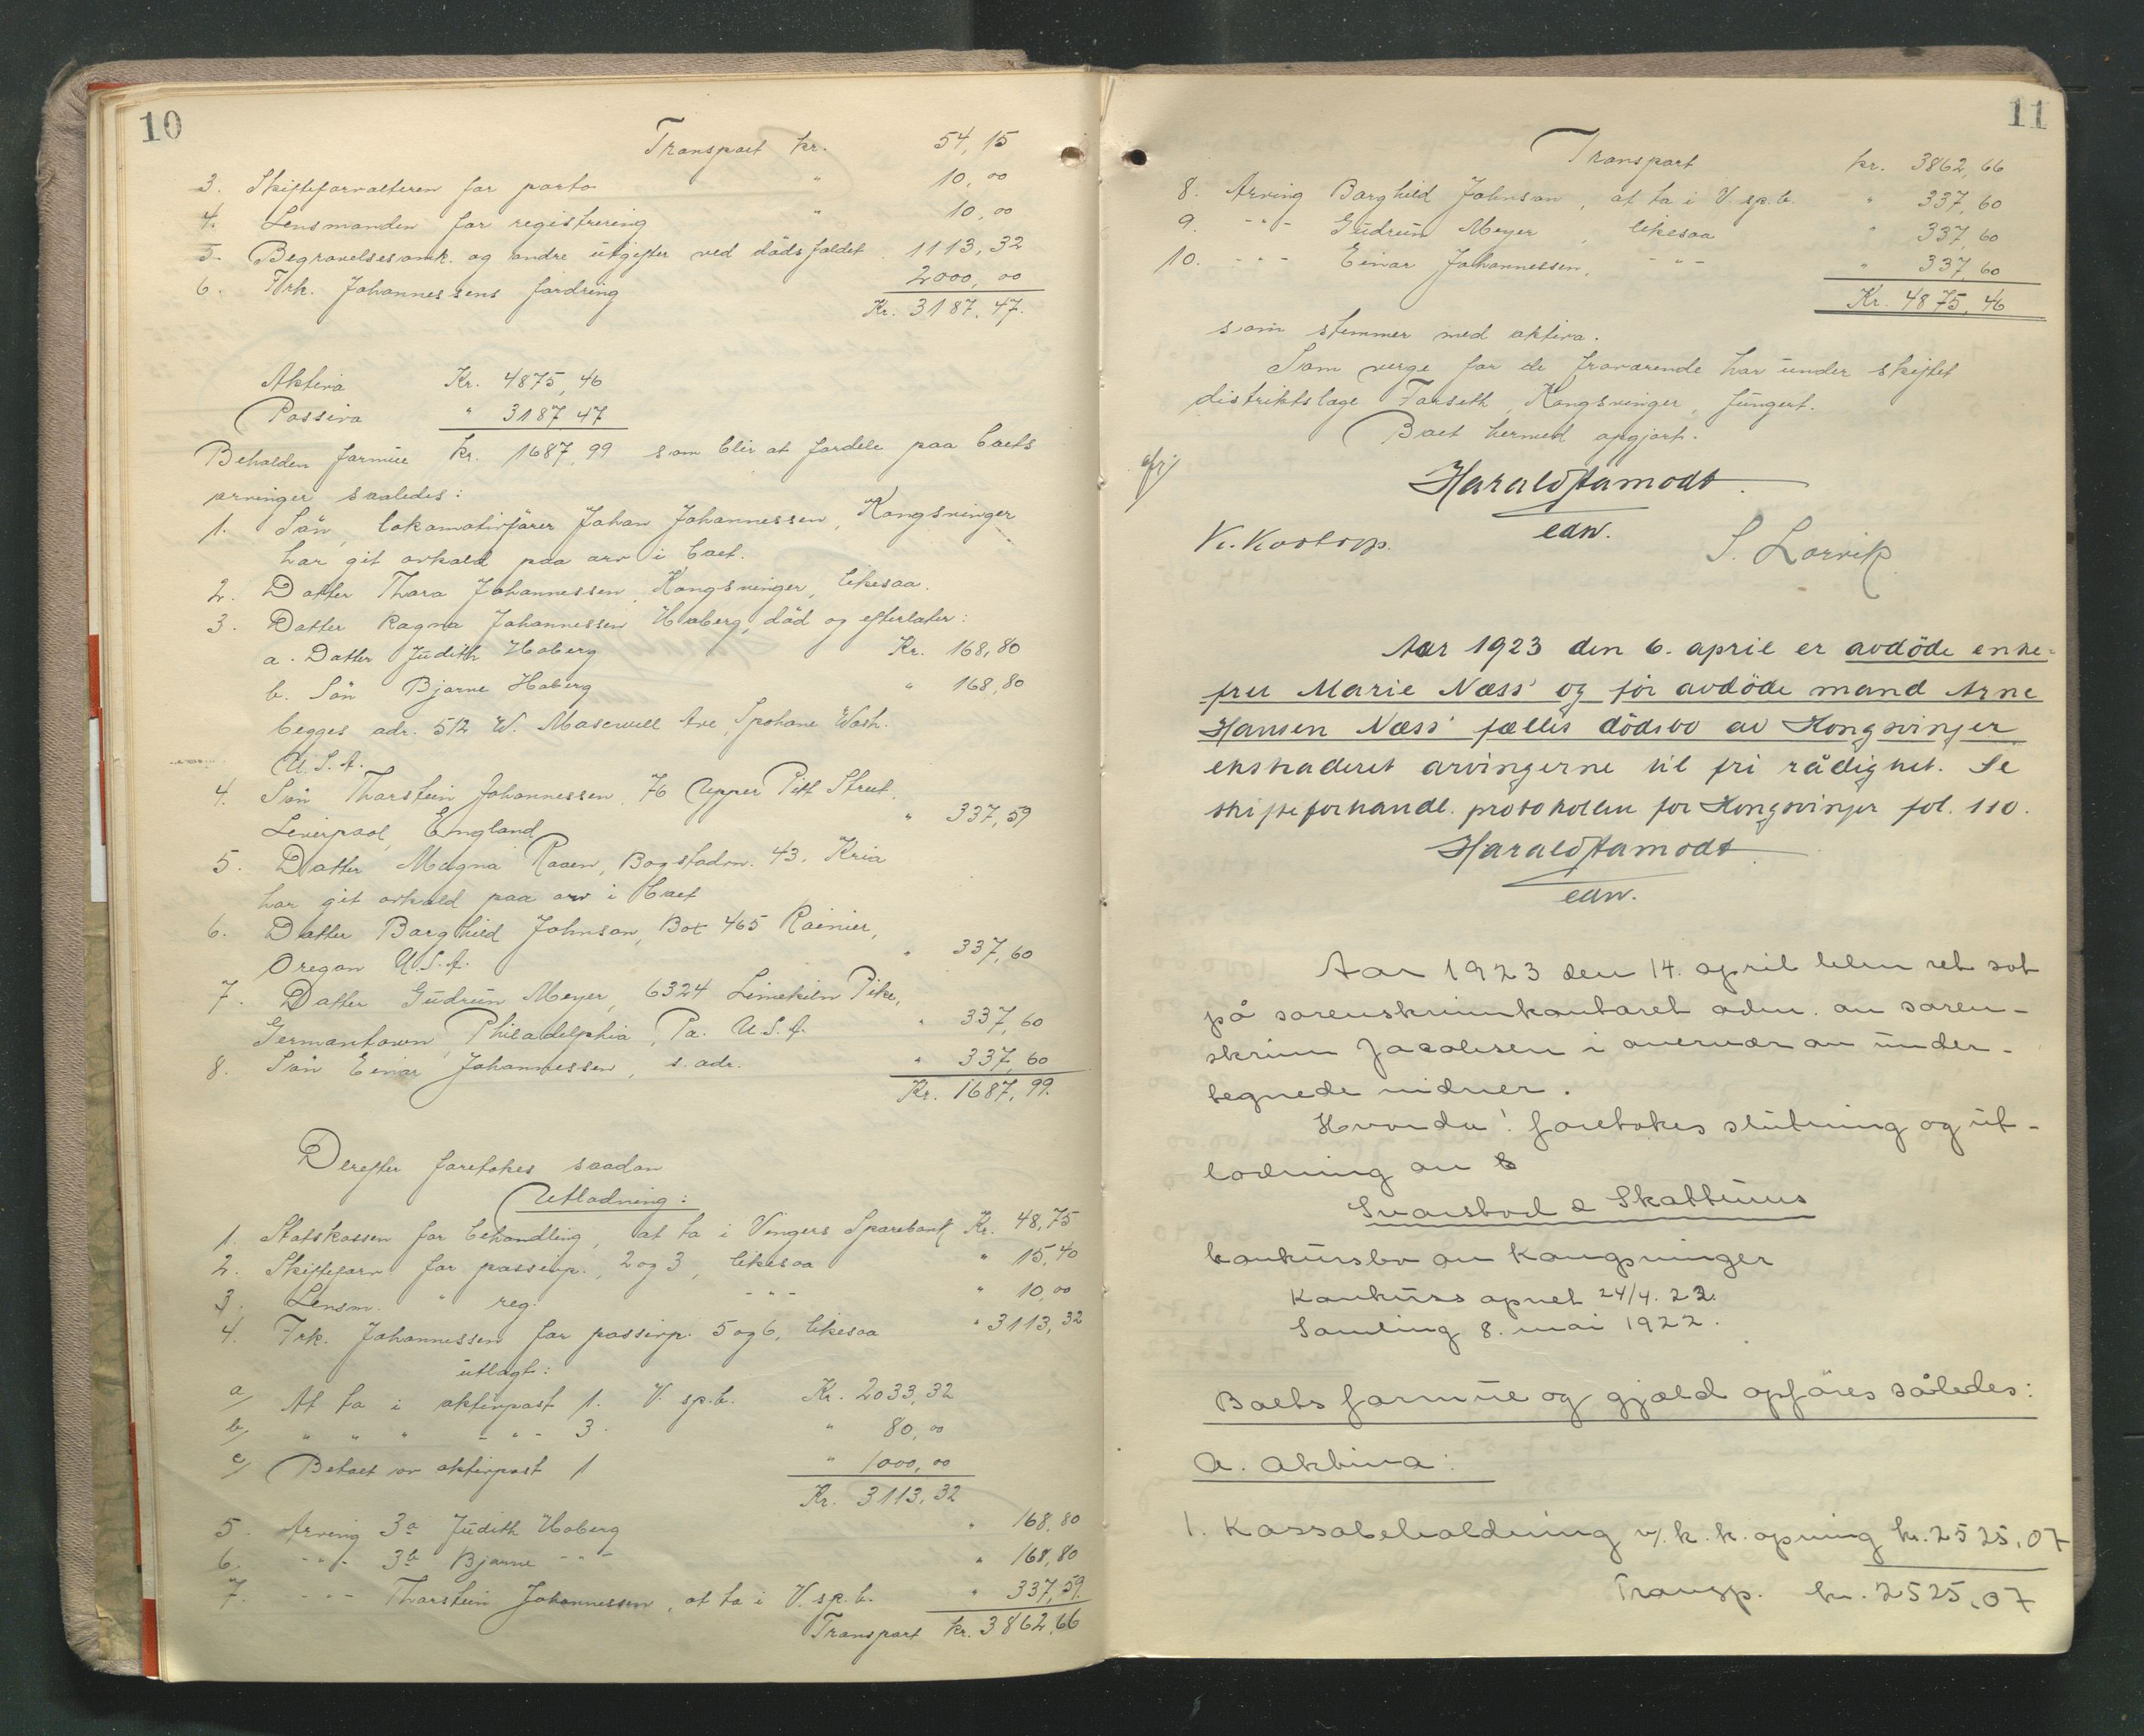 10
Transport kr. 54,15
3. Skifteforvalteren for porto " 10,00
4. Lensmanden for registrering " 10,00
5. Begravelsesomk. og andre utgifter ved dödsfaldet 1113,32
6. Frk. Johannessens fordring 2000,00
Kr. 3187,47.
Aktiva Kr. 4875,46
Passiva " 3187,47
Beholden formue Kr. 1687,99 som blir at fordele paa boets
arvinger saaledes:
1. Sön, lokomotivförer Johan Johannessen, Kongsvinger
har git avkald paa arv i boet.
2. Datter Thora Johannessen, Kongsvinger, likesaa.
3. Datter Ragna Johannessen Hoberg, död og efterlater:
a. Datter Judith Hoberg Kr. 168,80
b. Sön Bjarne Hoberg " 168,80
begges adr. 512 W. Ave, Spokane Wash.
U.S.A.
4. Sön Thorstein Johannessen, 76 Upper Pitt Street,
Liverpool, England " 337,59
5. Datter Magna Raaen, Bogstadvn. 43, Kria
har git avkald paa arv i boet
6. Datter Borghild Johnson, Box 465 Rainier,
Oregon U.S.A. " 337,60
7. Datter Gudrun Meyer, 6324 Limekiln Pike,
Germantown, Philadelphia, Pa. U.S.A. " 337,60
8. Sön Einar Johannessen, s. adr. " 337,60
Kr. 1687,99.
Derefter foretokes saadan
Utlodning:
1. Statskassen for behandling, at ta i Vingers Sparebank Kr. 48,75
2. Skifteforv for passivp. 2 og 3, likesaa " 15,40
3. Lensm. " reg. - " - " 10,00
4. Frk. Johannessen for passivp. 5 og 6, likesaa " 3113,32
utlagt:
a/ At ta i aktivpost 1. V. sp.b. Kr. 2033,32
b/ " " " - " - 3. " 80,00
c/ Betalt av aktivpost 1 " 1000,00
Kr. 3113,32
5. Arving 3a Judith Hoberg " 168,80
6. - " - 3b Bjarne - " - " 168,80
7. - " - Thorstein Johannessen, at ta i V. sp.b. " 337,59
Transport kr. 3862,66
11
Transport kr. 3862,66
8. Arving Borghild Johnson, at ta i V. sp.b. " 337,60
9. - " - Gudrun Meyer, likesaa " 337,60
10. - " - Einar Johannessen, - " - " 337,60
Kr. 4875,46
som stemmer med aktiva.
Som verge for de fraværende har under skiftet
distriktslæge Forseth, Kongsvinger, fungert.
Boet hermed opgjort.
Harald Aamodt
edsv.
S. Lorvik
Aar 1923 den 6. april er avdöde enke-
fru Marie Næss' og för avdöde mand Arne
Hansen Næss' fælles dödsbo av Kongsvinger
ekstraderet arvingerne til fri rådighet. Se
skifteforhandl. protokollen for Kongsvinger fol. 110.
Harald Aamodt
edsv.
Aar 1923 den 14. april blev ret sat
på sorenskriverkontoret adm. av soren-
skriver Jacobsen i overvær av under-
tegnede vidner.
Hvorda! foretokes slutning og ut-
lodning av
Svarstad & Skattums
konkursbo av Kongsvinger
Konkurs åpnet 24/4. 22.
Samling 8. mai 1922.
Boets formue og gjæld opföres således:
A. Aktiva:
1. Kassabeholdning v/ k. k. åpning kr. 2525,07
Transp. kr. 2525,07